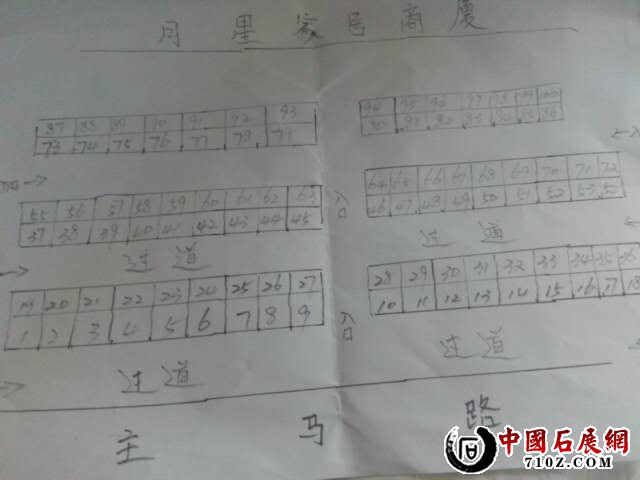 月星家居商廈
87 88 89 90 91 92 93
73 74 75 76 77 78 79
94 95 96 97 98 99 100
80 81 82 83 84 85 86
55 56 57 58 59 60 61 62 63
37 38 39 40 41 42 43 44 45
64 65 66 67 68 69 70 71 72
46 47 48 49 50 51 52 53 54
入口
过道
过道
19 20 21 22 23 24 25 26 27
1 2 3 4 5 6 7 8 9
28 29 30 31 32 33 34 35 36
10 11 12 13 14 15 16 17 18
入口
过道
过道
主马路
中國石展網
710Z.COM